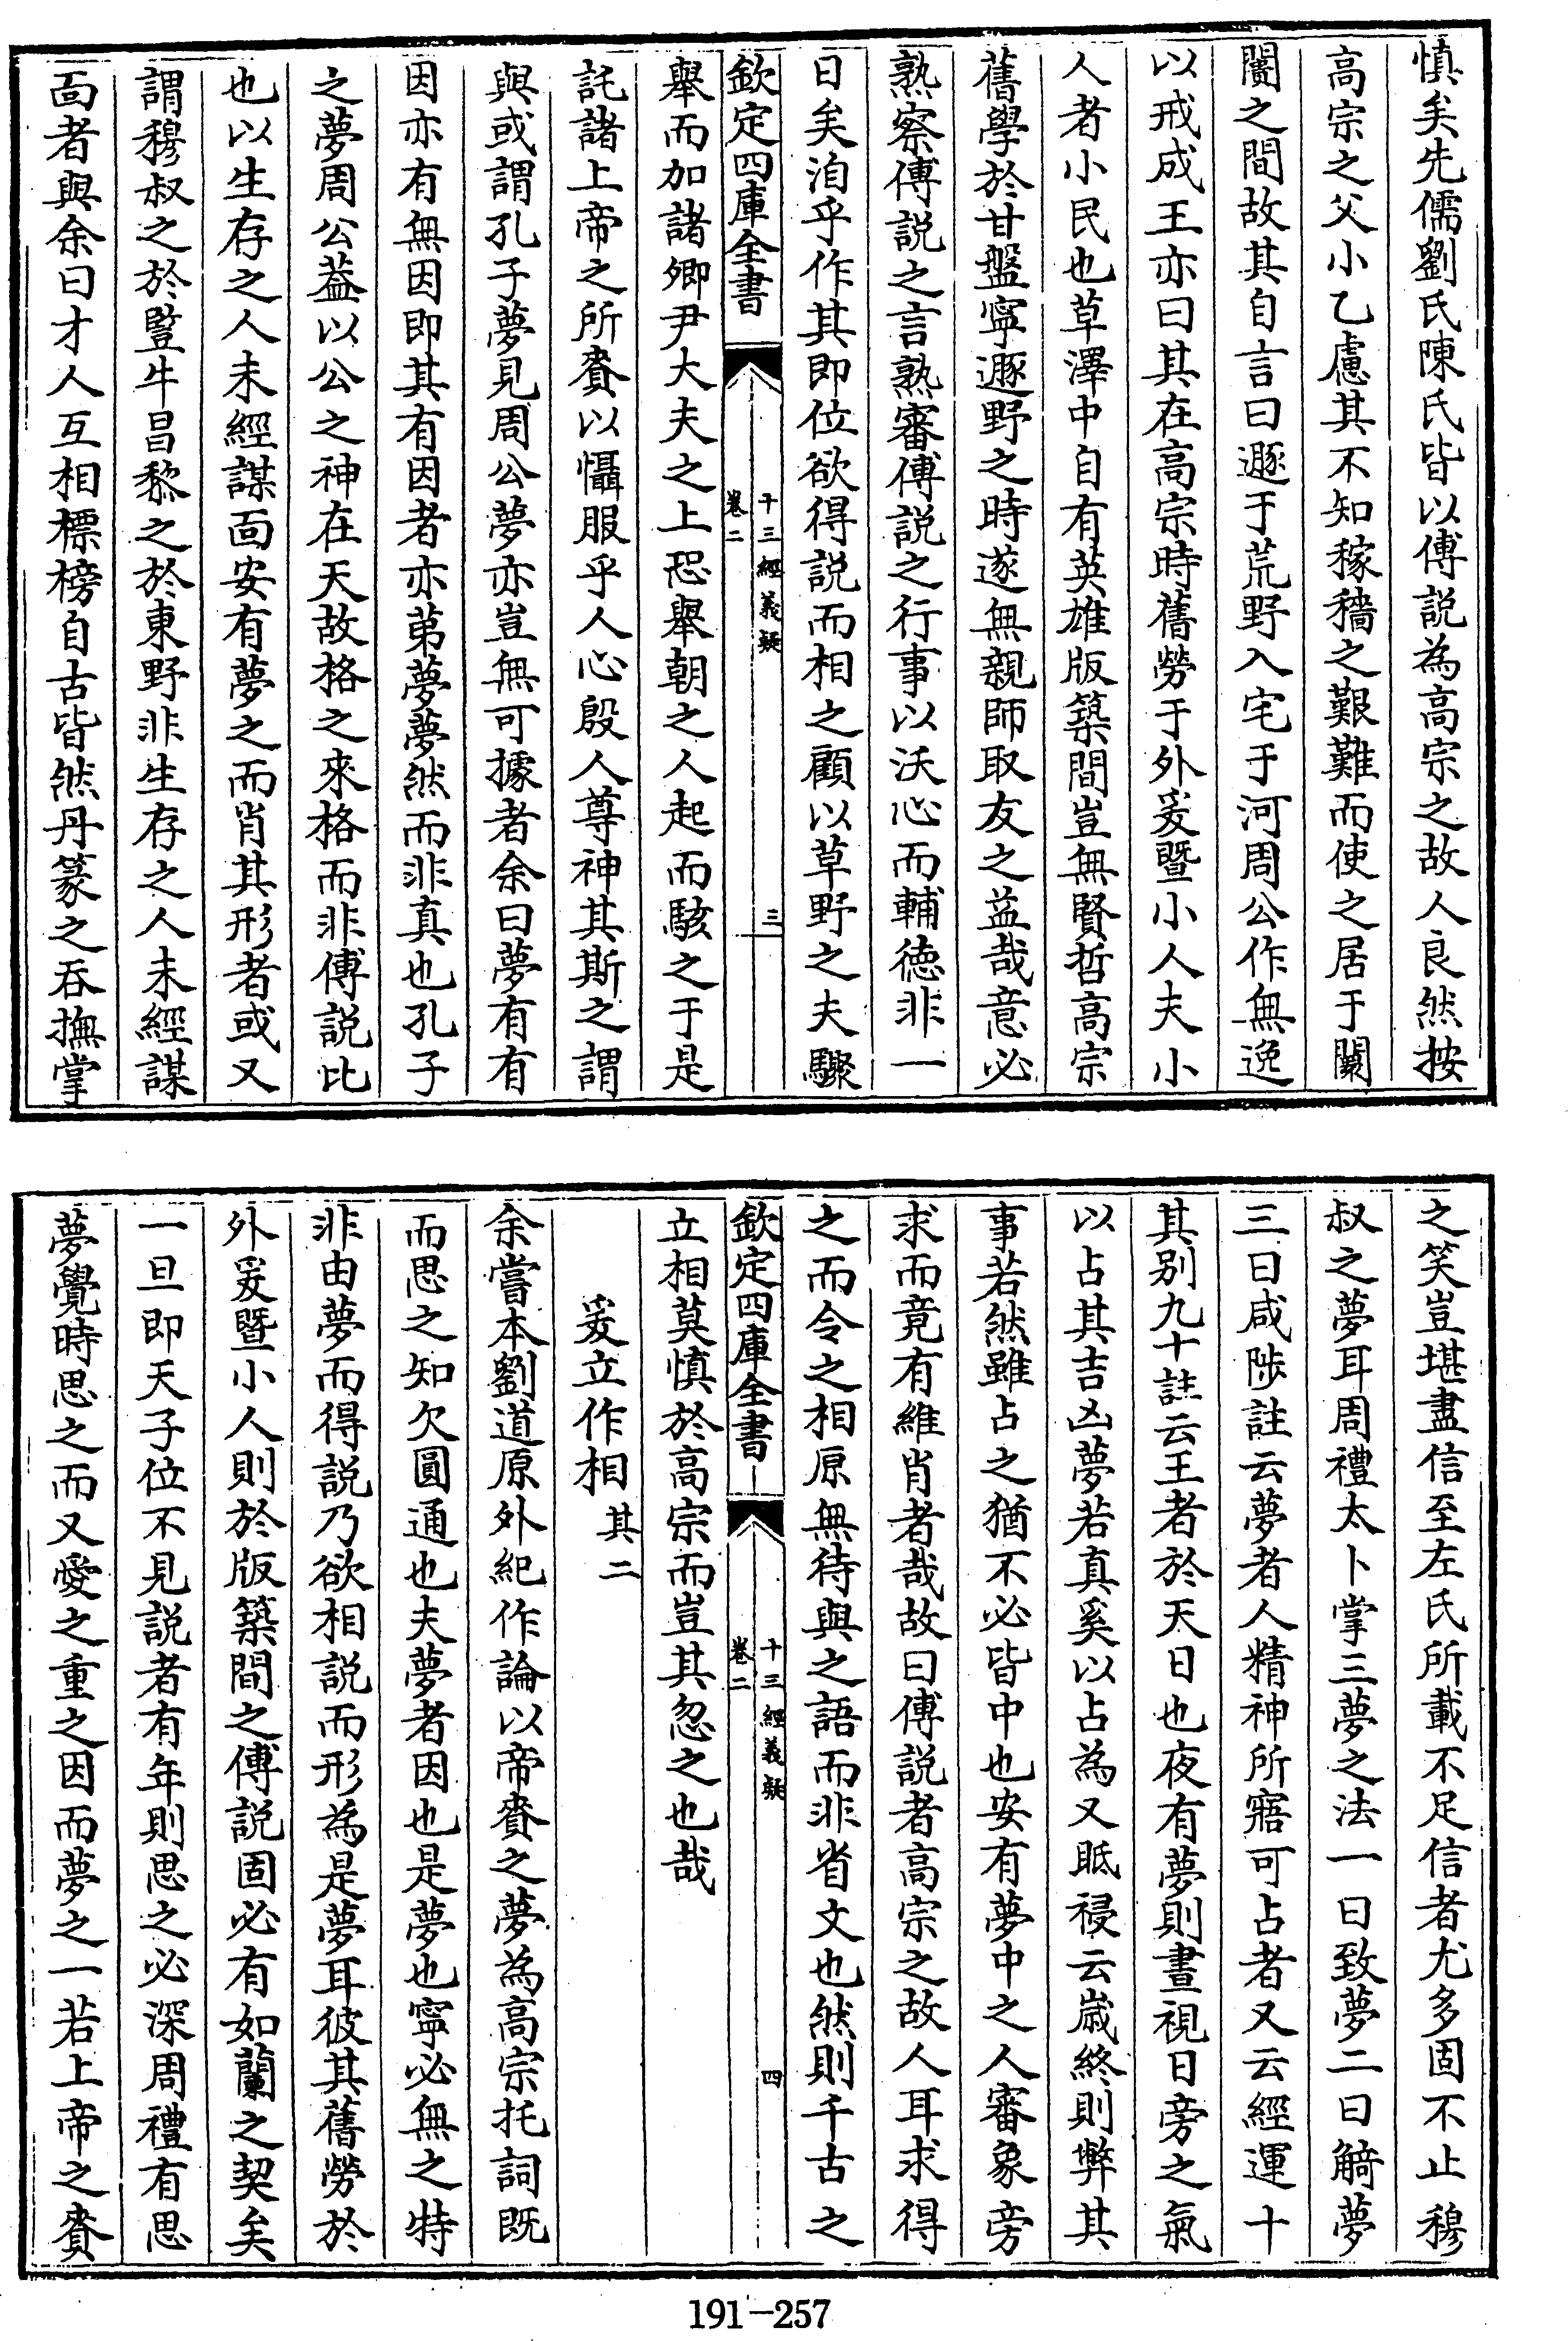 慎矣先儒劉氏陳氏皆以傅説為高宗之故人良然按
高宗之父小乙慮其不知稼穡之艱難而使之居于闤
闠之間故其自言曰遯于荒野入宅于河周公作無逸
以戒成王亦曰其在高宗時舊勞于外爰暨小人夫小
人者小民也草澤中自有英雄版築間豈無賢哲高宗
舊學於甘盤寧遯野之時遂無親師取友之益哉意必
熟察傅説之言熟審傅説之行事以沃心而輔徳非一
日矣洎乎作其即位欲得説而相之顧以草野之夫驟
欽定四庫全書
十三經義疑
卷二
三
舉而加諸卿尹大夫之上恐舉朝之人起而駭之于是
託諸上帝之所賚以懾服乎人心殷人尊神其斯之謂
與或謂孔子夢見周公夢亦豈無可據者余曰夢有有
因亦有無因即其有因者亦苐夢夢然而非真也孔子
之夢周公葢以公之神在天故格之來格而非傅説比
也以生存之人未經謀面安有夢之而肖其形者或又
謂穆叔之於豎牛昌黎之於東野非生存之人未經謀
面者與余曰才人互相標榜自古皆然丹篆之呑撫掌
之笑豈堪盡信至左氏所載不足信者尤多固不止穆
叔之夢耳周禮太卜掌三夢之法一曰致夢二曰觭夢
三曰咸陟註云夢者人精神所寤可占者又云經運十
其别九十註云王者於天日也夜有夢則晝視日旁之氣
以占其吉凶夢若真奚以占為又眡祲云嵗終則弊其
事若然雖占之猶不必皆中也安有夢中之人審象旁
求而竟有維肖者哉故曰傅説者高宗之故人耳求得
之而令之相原無待與之語而非省文也然則千古之
欽定四庫全書
十三經義疑
卷二
四
立相莫慎於高宗而豈其忽之也哉
爰立作相 其二
余嘗本劉道原外紀作論以帝賚之夢為高宗托詞既
而思之知欠圓通也夫夢者因也是夢也寧必無之特
非由夢而得説乃欲相説而形為是夢耳彼其舊勞於
外爰暨小人則於版築間之傅説固必有如蘭之契矣
一旦即天子位不見説者有年則思之必深周禮有思
夢覺時思之而又愛之重之因而夢之一若上帝之賚
191-257